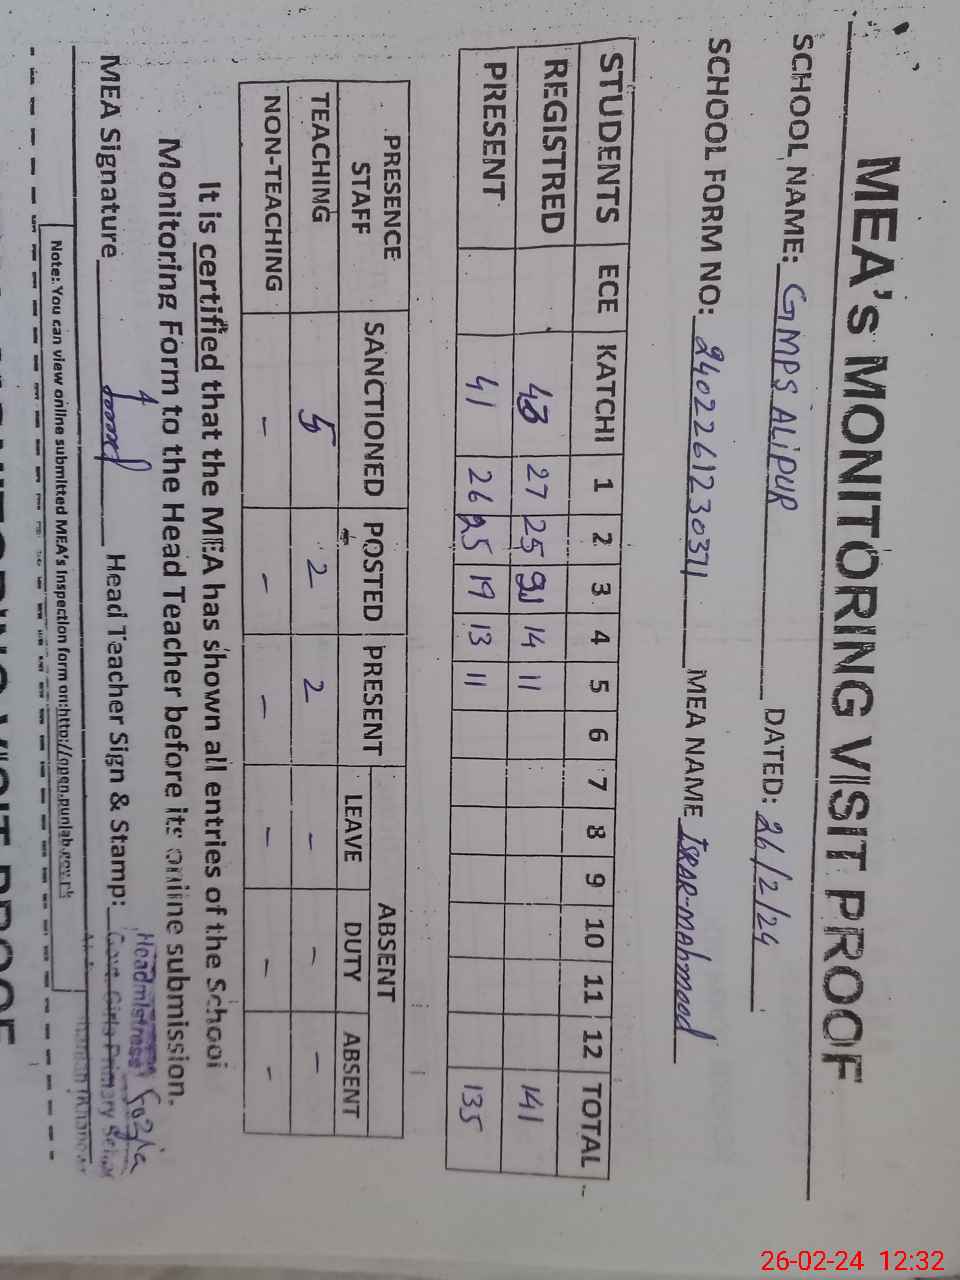 MEA's MONITORING VISIT PROOF
SCHOOL NAME: GMPS ALIPUR DATED: 26/2/24
SCHOOL FORM NO: 240226123037 MEA NAME ISRAR-MAHMOOD
STUDENTS ECE KATCHI 1 2 3 4 5 6 7 8 9 10 11 12 TOTAL
REGISTRED 43 27 25 21 14 11 141
PRESENT 41 26 25 19 13 11 135
PRESENCE STAFF SANCTIONED POSTED PRESENT ABSENT
LEAVE DUTY ABSENT
TEACHING 5 2 2 - - -
NON-TEACHING - - - - - -
It is certified that the MEA has shown all entries of the School
Monitoring Form to the Head Teacher before its online submission.
MEA Signature Head Teacher Sign & Stamp: Fozia
Headmistress
Govt. Girls Primary School
Note: You can view online submitted MEA's Inspection form on:http://open.punjab.gov.pk
MONITORING VISIT PROOF
26-02-24 12:32